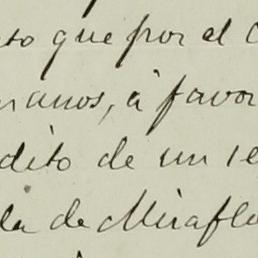 so que por el
anos, á favor
dito de un
da de Miraflo